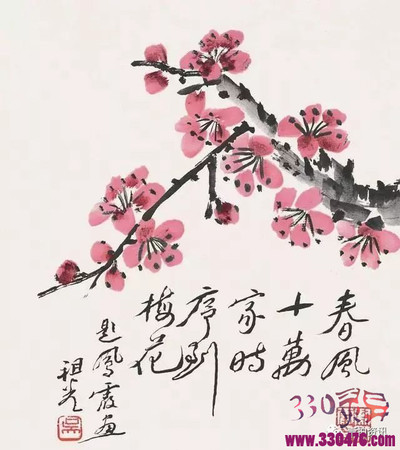 春風
十萬
家時
序到
梅花
題鳳霞畫
祖光
330
www.330476.com